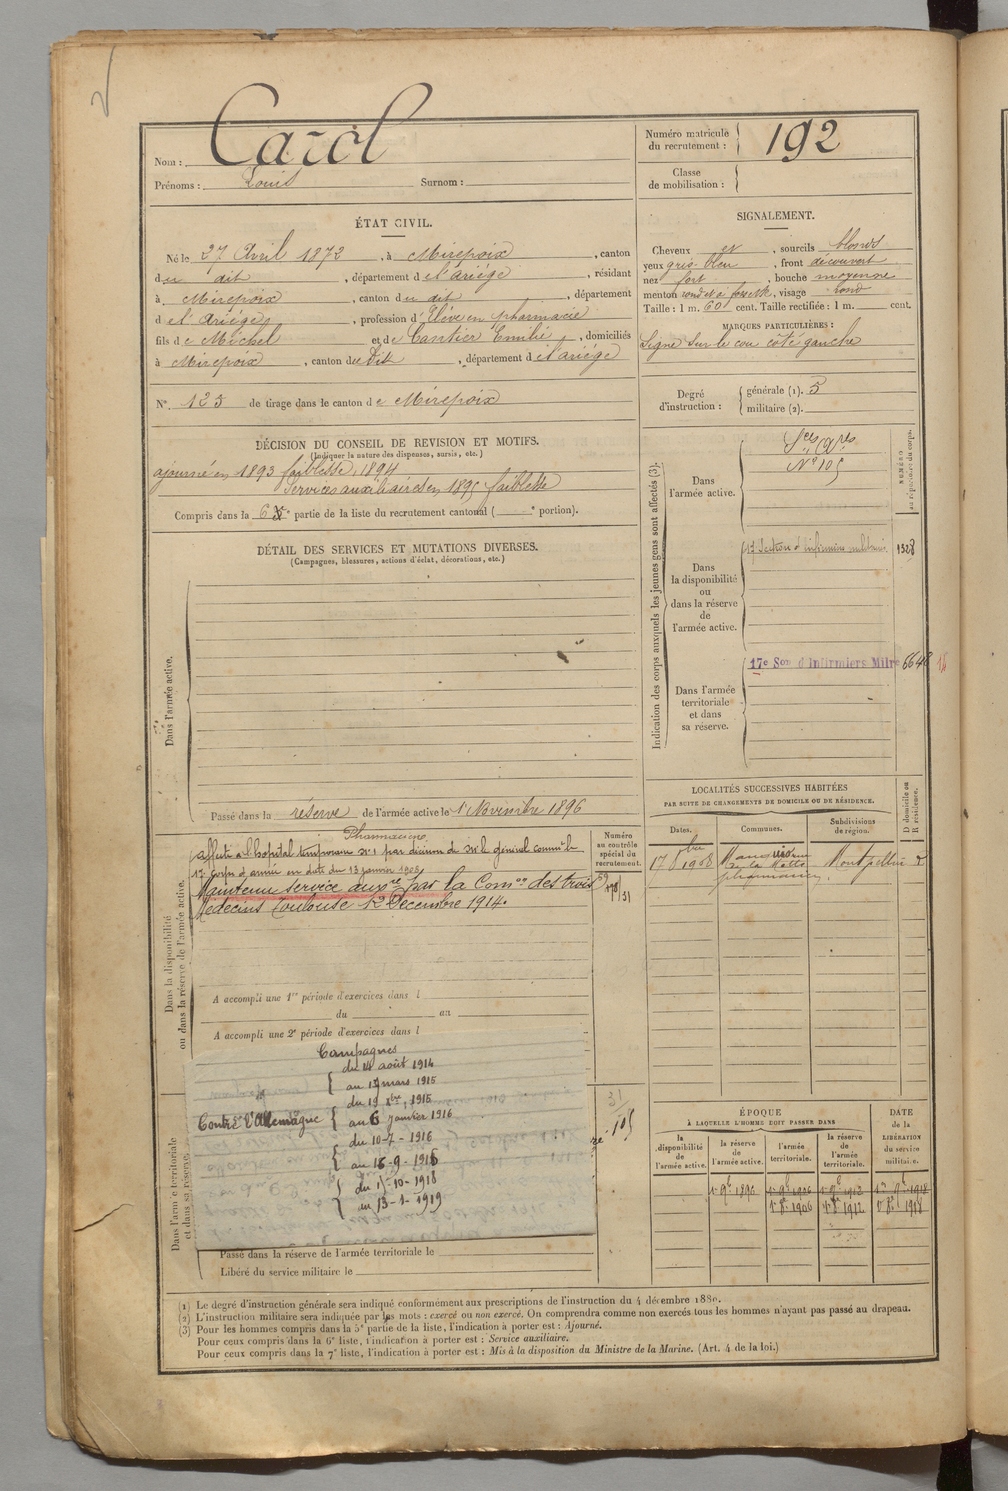 Nom : Carol
Prénoms : Louis Surnom :
Numéro matricule du recrutement : 192
Classe de mobilisation :
ÉTAT CIVIL.
Né le 27 Avril 1872, à Mirepoix, canton
du dit, département de l'Ariège, résidant
à Mirepoix, canton du dit, département
de l'Ariège, profession d'Élève en pharmacie
fils de Michel et de Cantier Emilie, domiciliés
à Mirepoix, canton du Dit, département de l'Ariège
N° 123 de tirage dans le canton de Mirepoix
SIGNALEMENT.
Cheveux et, sourcils blonds
yeux gris bleu, front découvert
nez fort, bouche moyenne
menton rond et à fossette, visage rond
Taille : 1 m. 60 cent. Taille rectifiée : 1 m. cent.
MARQUES PARTICULIÈRES :
Signe sur le cou côté gauche
Degré d'instruction : générale (1). 3
militaire (2).
DÉCISION DU CONSEIL DE REVISION ET MOTIFS.
(Indiquer la nature des dispenses, sursis, etc.)
ajourné en 1893 faiblesse, 1894
Services auxiliaires en 1895 faiblesse
Compris dans la 6e partie de la liste du recrutement cantonal ( e portion).
DÉTAIL DES SERVICES ET MUTATIONS DIVERSES.
(Campagnes, blessures, actions d'éclat, décorations, etc.)
Dans l'armée active.
Passé dans la réserve de l'armée active le 1er Novembre 1896
Indication des corps auxquels les jeunes gens sont affectés (3).
NUMÉRO au répertoire du corps.
Dans l'armée active.
N° 105
Dans la disponibilité ou dans la réserve de l'armée active.
17 Section d'infirmiers militaires 1328
Dans l'armée territoriale et dans sa réserve.
17e Son d'Infirmiers Milres 6648
LOCALITÉS SUCCESSIVES HABITÉES
PAR SUITE DE CHANGEMENTS DE DOMICILE OU DE RÉSIDENCE.
Dates. Communes. Subdivisions de région. D domicile ou R résidence.
17 8bre 1908 Montpellier D
pharmacien
Dans la disponibilité ou dans la réserve de l'armée active.
Numéro au contrôle spécial du recrutement.
Pharmacien
affecté à l'hôpital temporaire n° 1 par décision de Mr le général commt le
17e Corps d'armée en date du 13 janvier 1908
Maintenu service auxre par la Comon des trois
Médecins Toulouse 12 Décembre 1914.
A accompli une 1re période d'exercices dans l
du au
A accompli une 2e période d'exercices dans l
Campagnes
Contre l'Allemagne
du 14 août 1914
au 17 mars 1915
du 19 8bre 1915
au 6 janvier 1916
du 10-7-1916
au 18-9-1918
du 15-10-1918
au 13-1-1919
Dans l'armée territoriale et dans sa réserve.
Passé dans la réserve de l'armée territoriale le
Libéré du service militaire le
ÉPOQUE
À LAQUELLE L'HOMME DOIT PASSER DANS
la disponibilité de l'armée active.
la réserve de l'armée active.
l'armée territoriale.
la réserve de l'armée territoriale.
DATE de la LIBÉRATION du service militaire.
1er 9bre 1896 1er 9bre 1906 1er 9bre 1912 1er 9bre 1918
1er 8bre 1906 1er 8bre 1912 1er 8bre 1918
(1) Le degré d'instruction générale sera indiqué conformément aux prescriptions de l'instruction du 4 décembre 1889.
(2) L'instruction militaire sera indiquée par les mots : exercé ou non exercé. On comprendra comme non exercés tous les hommes n'ayant pas passé au drapeau.
(3) Pour les hommes compris dans la 5e partie de la liste, l'indication à porter est : Ajourné.
Pour ceux compris dans la 6e liste, l'indication à porter est : Service auxiliaire.
Pour ceux compris dans la 7e liste, l'indication à porter est : Mis à la disposition du Ministre de la Marine. (Art. 4 de la loi.)